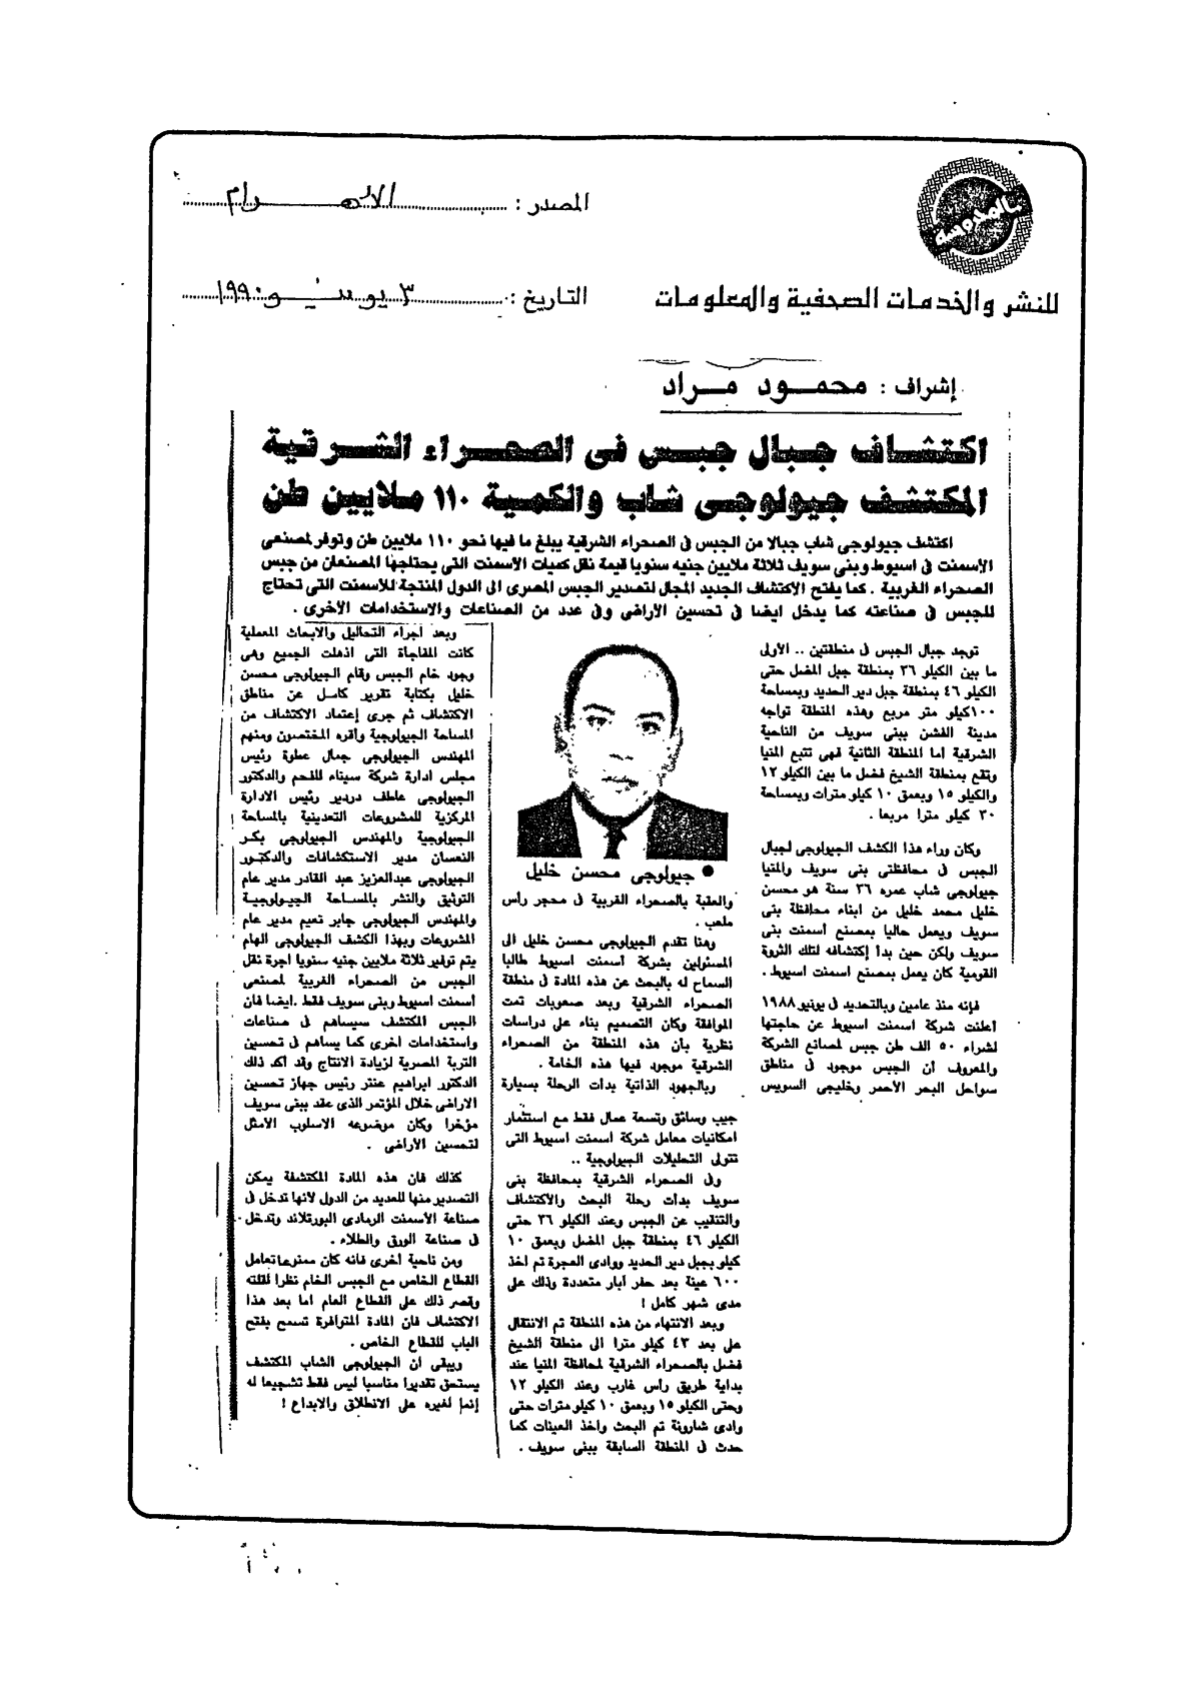 المصدر : الأهرام
بالمدوسة
التاريخ : ٣ يونيو ١٩٩٠
للنشر والخدمات الصحفية والمعلومات
إشراف : محمود مراد
اكتشاف جبال جبس فى الصحراء الشرقية
المكتشف جيولوجى شاب والكمية ١١٠ ملايين طن
اكتشف جيولوجى شاب جبالا من الجبس فى الصحراء الشرقية يبلغ ما فيها نحو ١١٠ ملايين طن وتوفر لمصنعى
الأسمنت فى اسيوط وبنى سويف ثلاثة ملايين جنيه سنويا قيمة نقل كميات الأسمنت التى يحتاجها المصنعان من جبس
الصحراء الغربية . كما يفتح الاكتشاف الجديد المجال لتصدير الجبس المصرى الى الدول المنتجة للأسمنت التى تحتاج
للجبس فى صناعته كما يدخل ايضا فى تحسين الأراضى وفى عدد من الصناعات والاستخدامات الأخرى .
توجد جبال الجبس فى منطقتين .. الأولى
ما بين الكيلو ٣٦ بمنطقة جبل المضل حتى
الكيلو ٤٦ بمنطقة جبل دير الحديد وبمساحة
١٠٠كيلو متر مربع وهذه المنطقة تواجه
مدينة الفشن ببنى سويف من الناحية
الشرقية أما المنطقة الثانية فهى تتبع المنيا
وتقع بمنطقة الشيخ فضل ما بين الكيلو ١٢
والكيلو ١٥ وبعمق ١٠ كيلو مترات وبمساحة
٣٠ كيلو مترا مربعا .
وكان وراء هذا الكشف الجيولوجى لجبال
الجبس فى محافظتى بنى سويف والمنيا
جيولوجى شاب عمره ٣٦ سنة هو محسن
خليل محمد خليل من ابناء محافظة بنى
سويف ويعمل حاليا بمصنع أسمنت بنى
سويف ولكن حين بدأ إكتشافه لتلك الثروة
القومية كان يعمل بمصنع اسمنت اسيوط .
فإنه منذ عامين وبالتحديد فى يونيو ١٩٨٨
أعلنت شركة اسمنت اسيوط عن حاجتها
لشراء ٥٠ الف طن جبس لمصانع الشركة
والمعروف أن الجبس موجود فى مناطق
سواحل البحر الأحمر وخليجى السويس
● جيولوجى محسن خليل
والعقبة بالصحراء الغربية فى محجر رأس
ملعب .
وهنا تقدم الجيولوجى محسن خليل الى
المسئولين بشركة أسمنت اسيوط طالبا
السماح له بالبحث عن هذه المادة فى منطقة
الصحراء الشرقية وبعد صعوبات تمت
الموافقة وكان التصميم بناء على دراسات
نظرية بأن هذه المنطقة من الصحراء
الشرقية موجود فيها هذه الخامة .
وبالجهود الذاتية بدات الرحلة بسيارة
جيب وسائق وتسعة عمال فقط مع استثمار
امكانيات معامل شركة اسمنت اسيوط التى
تتولى التحليلات الجيولوجية ..
وفى الصحراء الشرقية بمحافظة بنى
سويف بدأت رحلة البحث والاكتشاف
والتنقيب عن الجبس وعند الكيلو ٣٦ حتى
الكيلو ٤٦ بمنطقة جبل المضل وبعمق ١٠
كيلو بجبل دير الحديد ووادى العجرة تم اخذ
٦٠٠ عينة بعد حفر أبار متعددة وذلك على
مدى شهر كامل !
وبعد الانتهاء من هذه المنطقة تم الانتقال
على بعد ٤٣ كيلو مترا الى منطقة الشيخ
فضل بالصحراء الشرقية لمحافظة المنيا عند
بداية طريق رأس غارب وعند الكيلو ١٢
وحتى الكيلو ١٥ وبعمق ١٠ كيلو مترات حتى
وادى شارونة تم البحث واخذ العينات كما
حدث فى المنطقة السابقة ببنى سويف .
وبعد اجراء التحاليل والابحاث المعملية
كانت المفاجأة التى اذهلت الجميع وهى
وجود خام الجبس وقام الجيولوجى محسن
خليل بكتابة تقرير كامل عن مناطق
الاكتشاف ثم جرى إعتماد الاكتشاف من
المساحة الجيولوجية وأقره المختصون ومنهم
المهندس الجيولوجى جمال عطوة رئيس
مجلس ادارة شركة سيناء للفحم والدكتور
الجيولوجى عاطف دردير رئيس الادارة
المركزية للمشروعات التعدينية بالمساحة
الجيولوجية والمهندس الجيولوجى بكر
النعسان مدير الاستكشافات والدكتور
الجيولوجى عبدالعزيز عبد القادر مدير عام
التوثيق والنشر بالمساحة الجيولوجية
والمهندس الجيولوجى جابر نعيم مدير عام
المشروعات وبهذا الكشف الجيولوجى الهام
يتم توفير ثلاثة ملايين جنيه سنويا اجرة نقل
الجبس من الصحراء الغربية لمصنعى
أسمنت اسيوط وبنى سويف فقط .ايضا فان
الجبس المكتشف سيساهم فى صناعات
واستخدامات اخرى كما يساهم فى تحسين
التربة المصرية لزيادة الانتاج وقد أكد ذلك
الدكتور ابراهيم عنتر رئيس جهاز تحسين
الاراضى خلال المؤتمر الذى عقد ببنى سويف
مؤخرا وكان موضوعه الاسلوب الأمثل
لتحسين الأراضى .
كذلك فان هذه المادة المكتشفة يمكن
التصدير منها للعديد من الدول لانها تدخل فى
صناعة الأسمنت الرمادى البورتلاند وتدخل
فى صناعة الورق والطلاء .
ومن ناحية أخرى فانه كان ممنوعا تعامل
القطاع الخاص مع الجبس الخام نظرا لقلته
وقصر ذلك على القطاع العام اما بعد هذا
الاكتشاف فان المادة المتوافرة تسمح بفتح
الباب للقطاع الخاص .
ويبقى ان الجيولوجى الشاب المكتشف
يستحق تقديرا مناسبا ليس فقط تشجيعا له
إنما لغيره على الانطلاق والابداع !